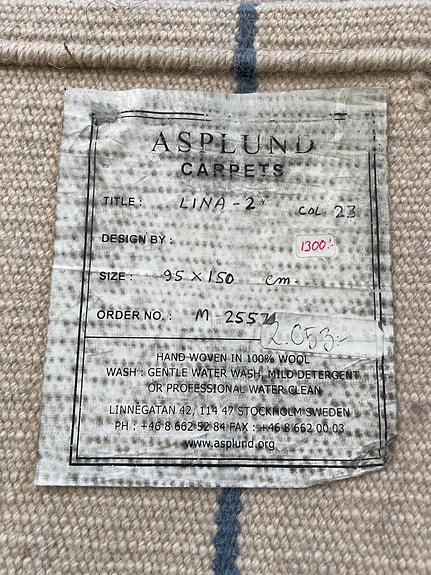 ASPLUND
CARPETS
TITLE : LINA - 2" COL. 23
DESIGN BY : 1300:-
SIZE : 95 X 150 cm.
ORDER NO. : M - 2557
2.053:-
HAND WOVEN IN 100% WOOL
WASH : GENTLE WATER WASH, MILD DETERGENT
OR PROFESSIONAL WATER CLEAN
LINNEGATAN 42, 114 47 STOCKHOLM SWEDEN
PH : +46 8 662 52 84 FAX : +46 8 662 00 03
www.asplund.org